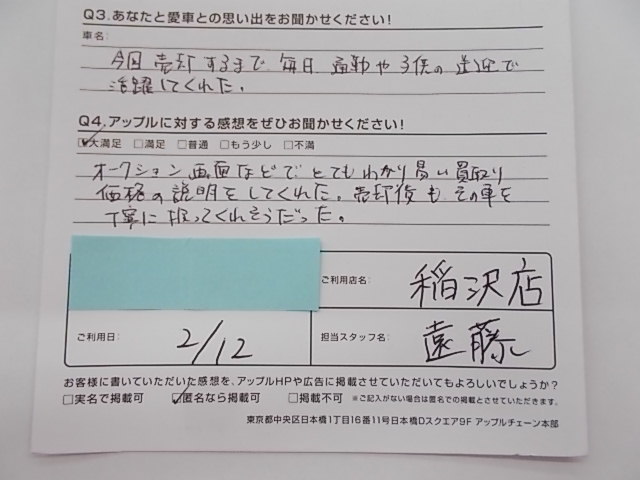 Q3.あなたと愛車との思い出をお聞かせください!
車名:
今回売却するまで毎日通勤や子供の送迎で
活躍してくれた。
Q4.アップルに対する感想をぜひお聞かせください!
☑大満足 □満足 □普通 □もう少し □不満
オークション画面などでとてもわかり易い買取り
価格の説明をしてくれた。売却後もその車を
丁寧に扱ってくれそうだった。
ご利用店名: 稲沢店
ご利用日: 2/12 担当スタッフ名: 遠藤
お客様に書いていただいた感想を、アップルHPや広告に掲載させていただいてもよろしいでしょうか?
□実名で掲載可 ☑匿名なら掲載可 □掲載不可 ※ご記入がない場合は匿名での掲載とさせていただきます。
東京都中央区日本橋1丁目16番11号日本橋Dスクエア9F アップルチェーン本部